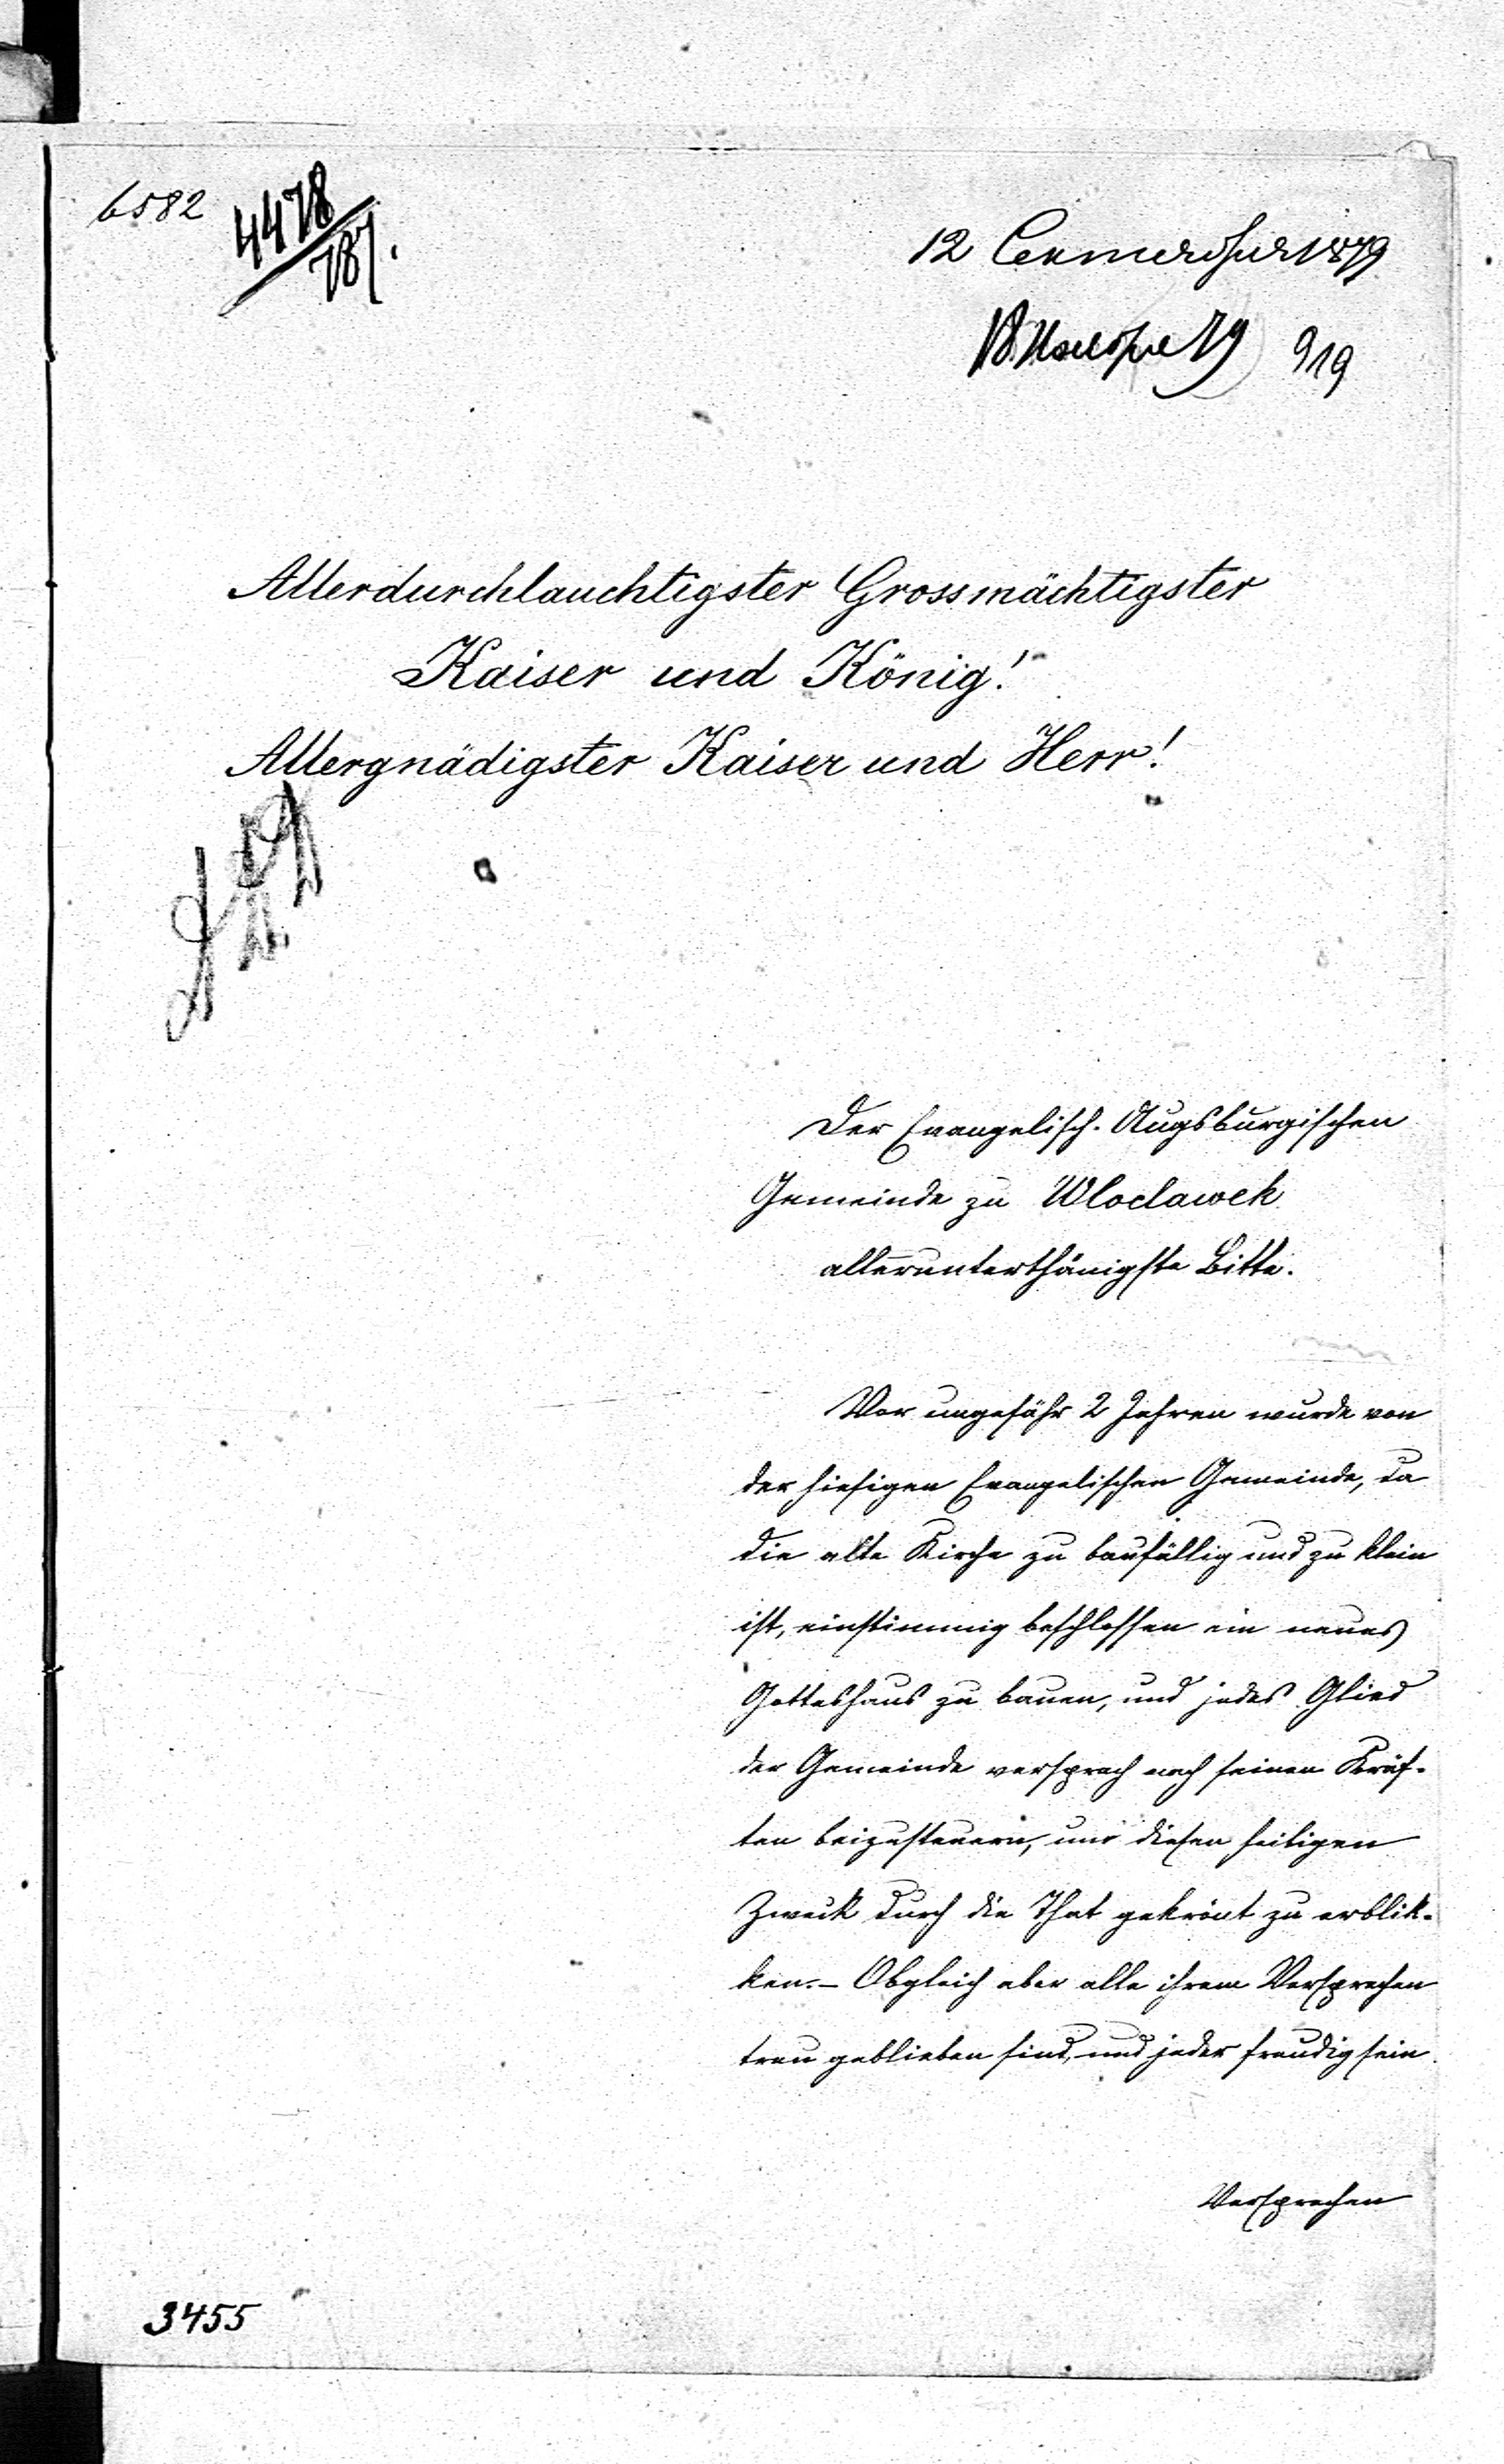 6582
4478
12 Сентября 1879
18 Ноября 79 919
Allerdurchlauchtigster Grossmächtigster
Kaiser und König!
Allergnädigster Kaiser und Herr!
Der Evangelisch-Augsburgischen
Gemeinde zu Wloclawek
allerunterthänigste Bitte.
Vor ungefähr 2 Jahren wurde von
der hiesigen Evangelischen Gemeinde, da
die alte Kirche zu baufällig und zu klein
ist, einstimmig beschlossen ein neues
Gotteshaus zu bauen, und jedes Glied
der Gemeinde versprach nach seinen Kräf-
ten beizusteuern, um diesen heiligen
Zweck durch die That gekrönt zu erblik-
ken.- Obgleich aber alle ihrem Versprechen
treu geblieben sind, und jeder freudig sein
Versprechen
3455